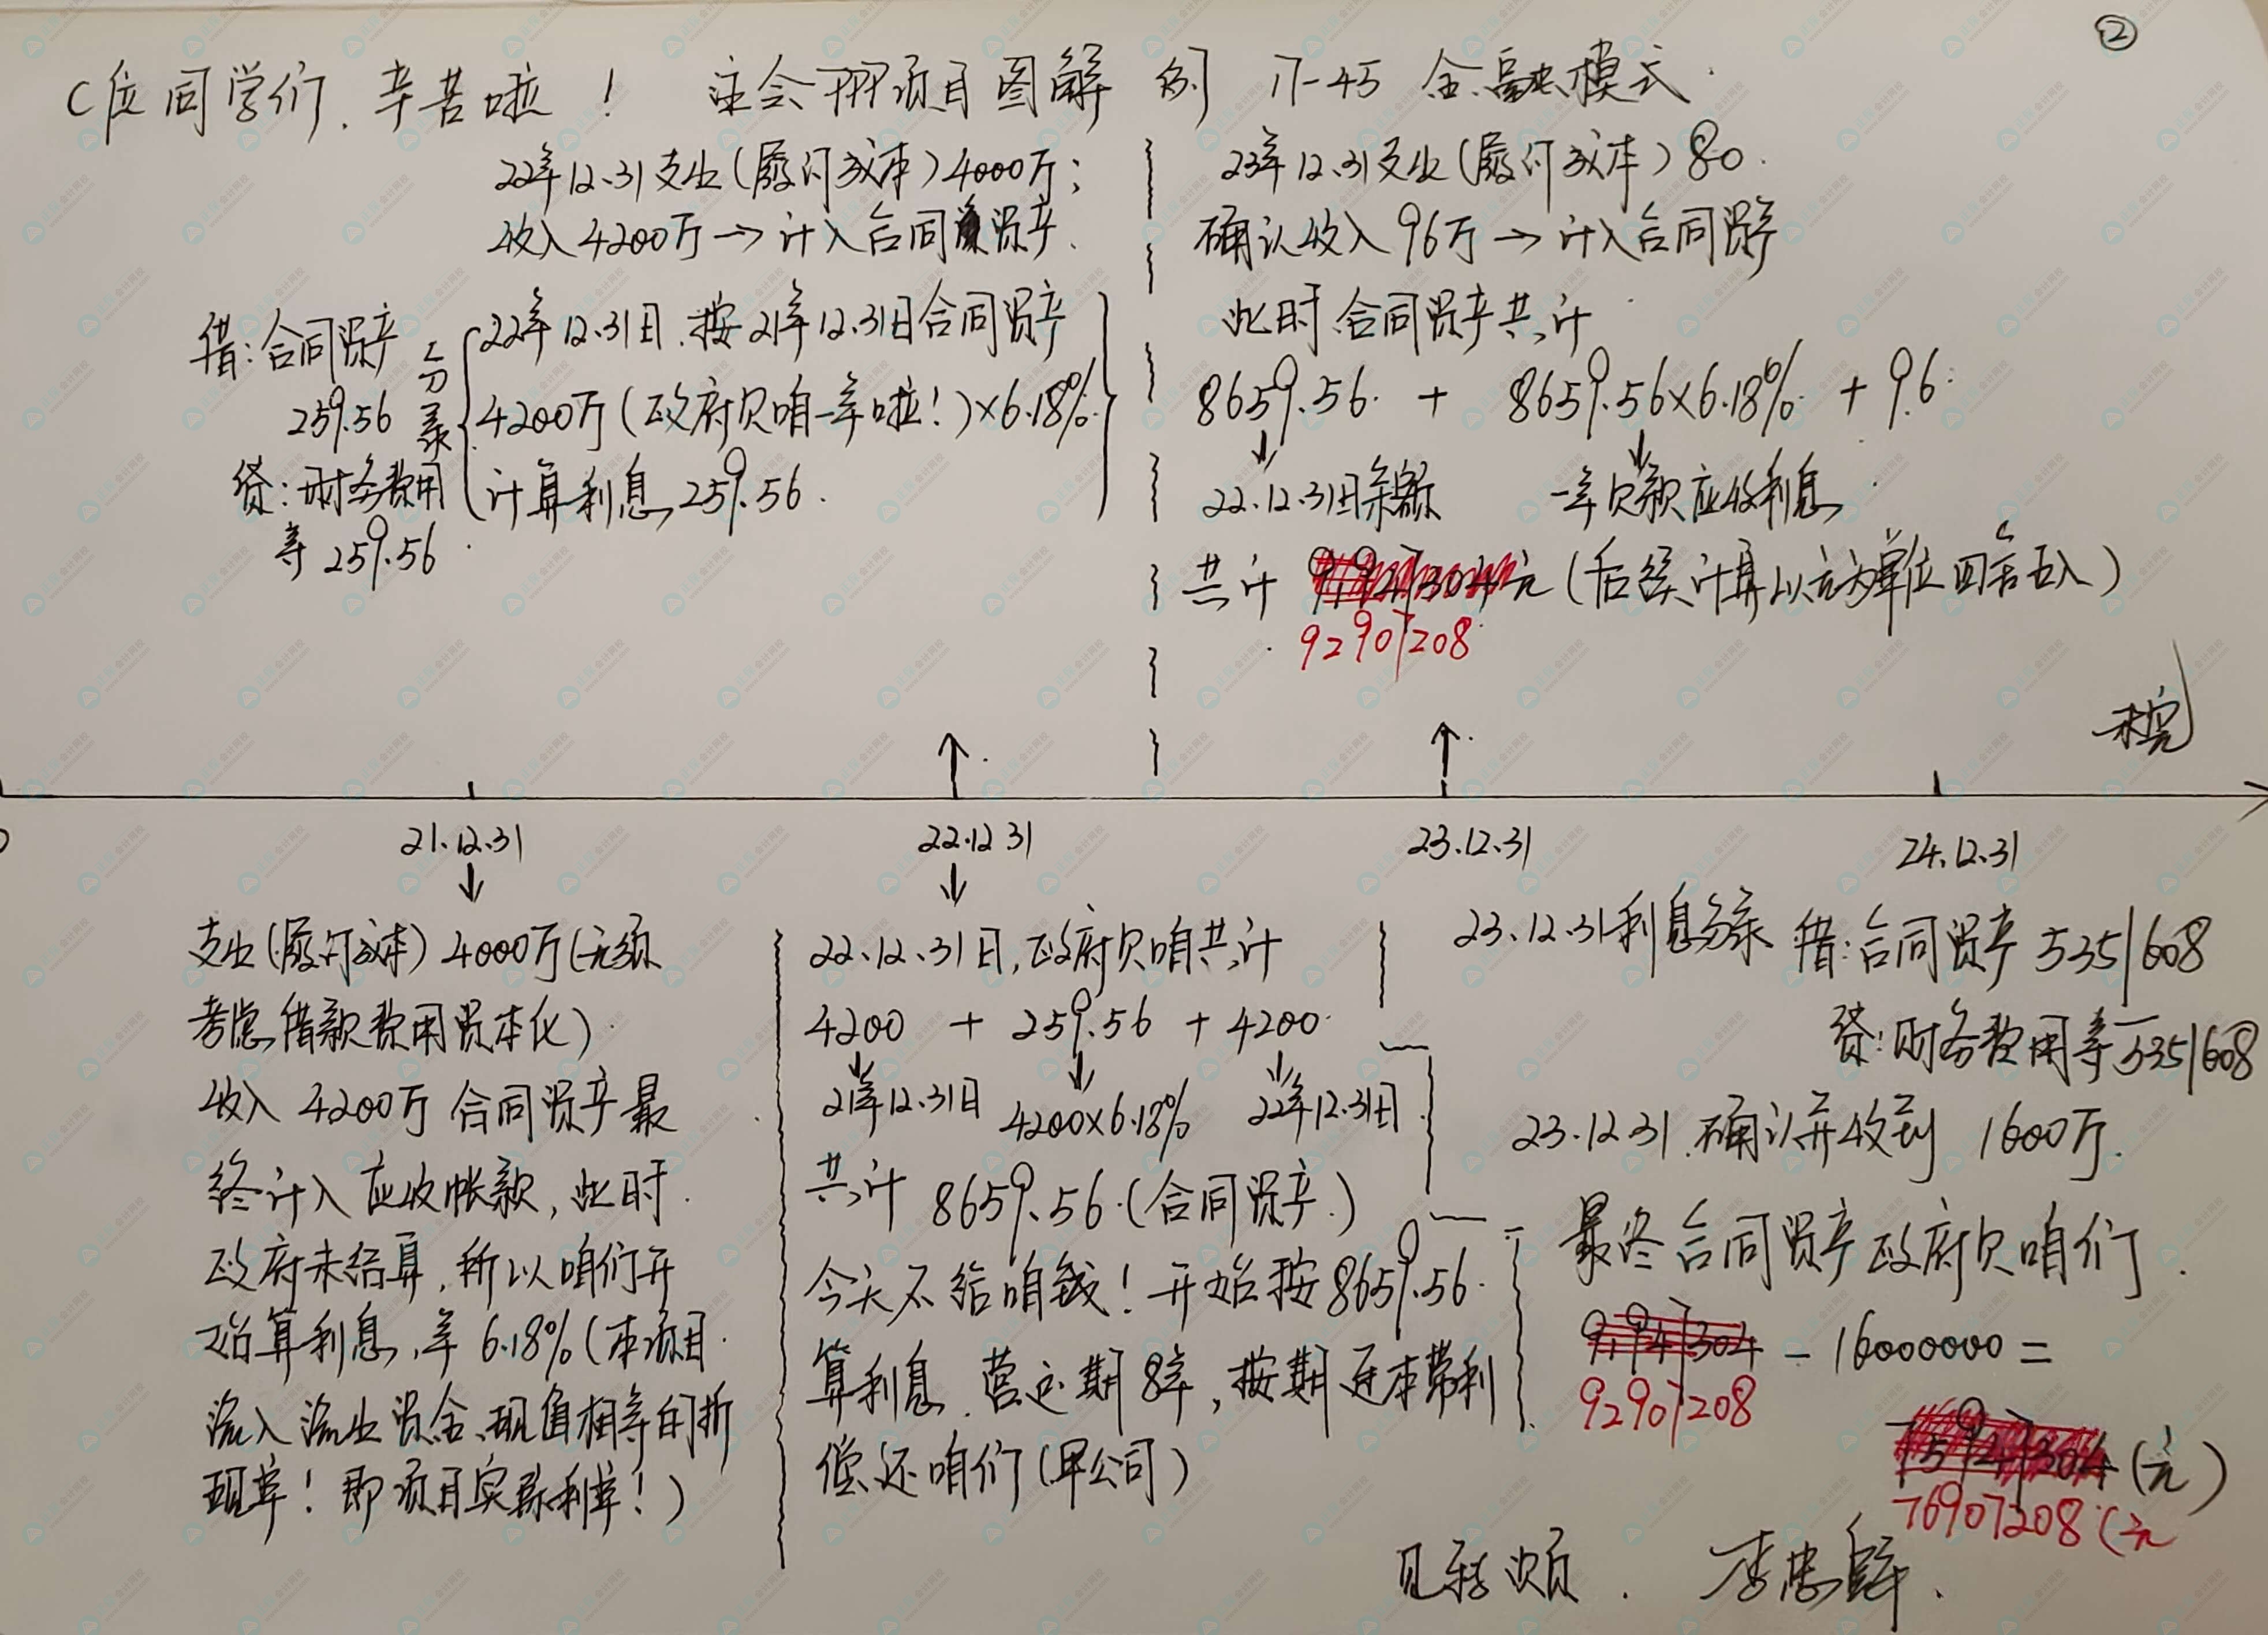 ②
C位同学们、辛苦啦! 注会PPP项目图解 例17-45 金融模式.
22年12.31支出(履约成本)4000万;
收入4200万→计入合同资产.
借:合同资产
259.56
贷:财务费用
等 259.56
分录
22年12.31日.按21年12.31日合同资产
4200万(政府欠咱一年啦!)×6.18%
计算利息259.56.
23年12.31支出(履约成本)80.
确认收入96万→计入合同资产
此时合同资产共计
8659.56 + 8659.56×6.18% + 96.
22.12.31日余额 一年欠款应收利息
共计 元(后续计算以元为单位四舍五入)
92907208
未完
21.12.31
22.12 31
23.12.31
24.12.31
支出(履约成本)4000万(无须
考虑借款费用资本化)
收入4200万 合同资产最
终计入应收帐款,此时
政府未结算,所以咱们开
始算利息,率6.18%(本项目
流入流出资金现值相等的折
现率!即项目实际利率!)
22.12.31日,政府欠咱共计
4200 + 259.56 + 4200
21年12.31日 4200×6.18% 22年12.31日
共计 8659.56.(合同资产.)
今天不给咱钱!开始按8659.56
算利息.营运期8年,按期还本带利
偿还咱们(甲公司)
23.12.31利息分录 借:合同资产 5351608
贷:财务费用等5351608
23.12.31.确认并收到 1600万.
最终合同资产政府欠咱们
92907208 - 16000000 =
(元)
76907208(元